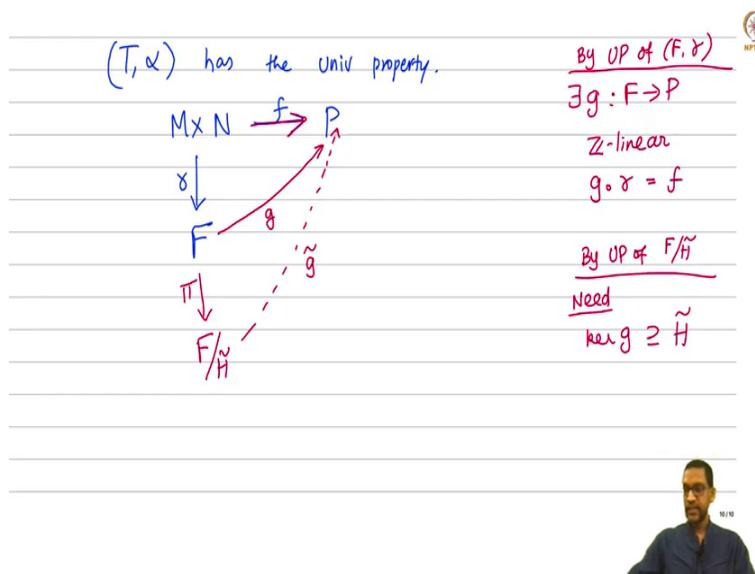 (T, α) has the univ property.
M×N f→ P
γ↓
F
g
g̃
π↓
F/H̃
By UP of (F, γ)
∃g : F→P
ℤ-linear
g∘γ = f
By UP of F/H̃
Need
ker g ⊇ H̃
NPT
10/10